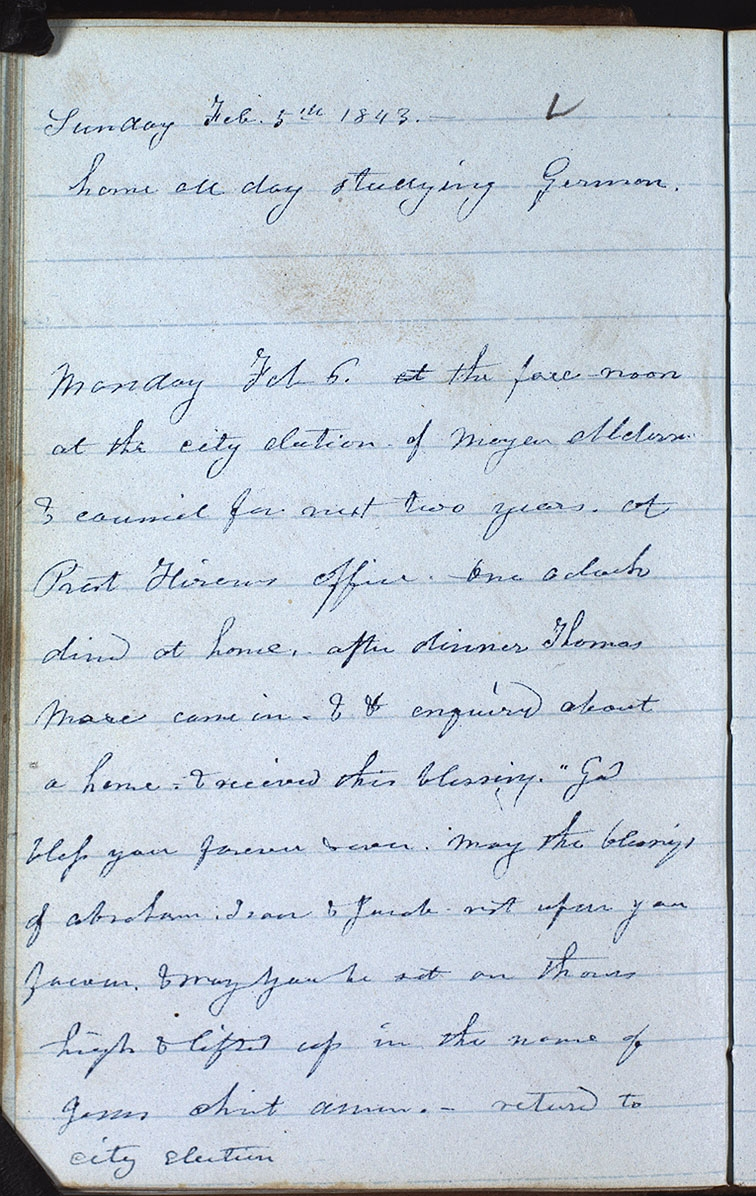 Sunday Feb. 5th 1843. —
home all day studying German.
Monday Feb 6. at the fore noon
at the city election of Mayer Alderm
& council for next two years. at
Prest Hirums office. One oclock
dined at home. after dinner Thomas
More came in. & & enquired about
a home - & recieved this blessing. "God
bless you forever & ever. May the blessings
of abraham. Isaac & Jacob rest upon you
forever. & may you be set on thrones
high & lifted up in the name of
Jesus christ amen. — returned to
city election